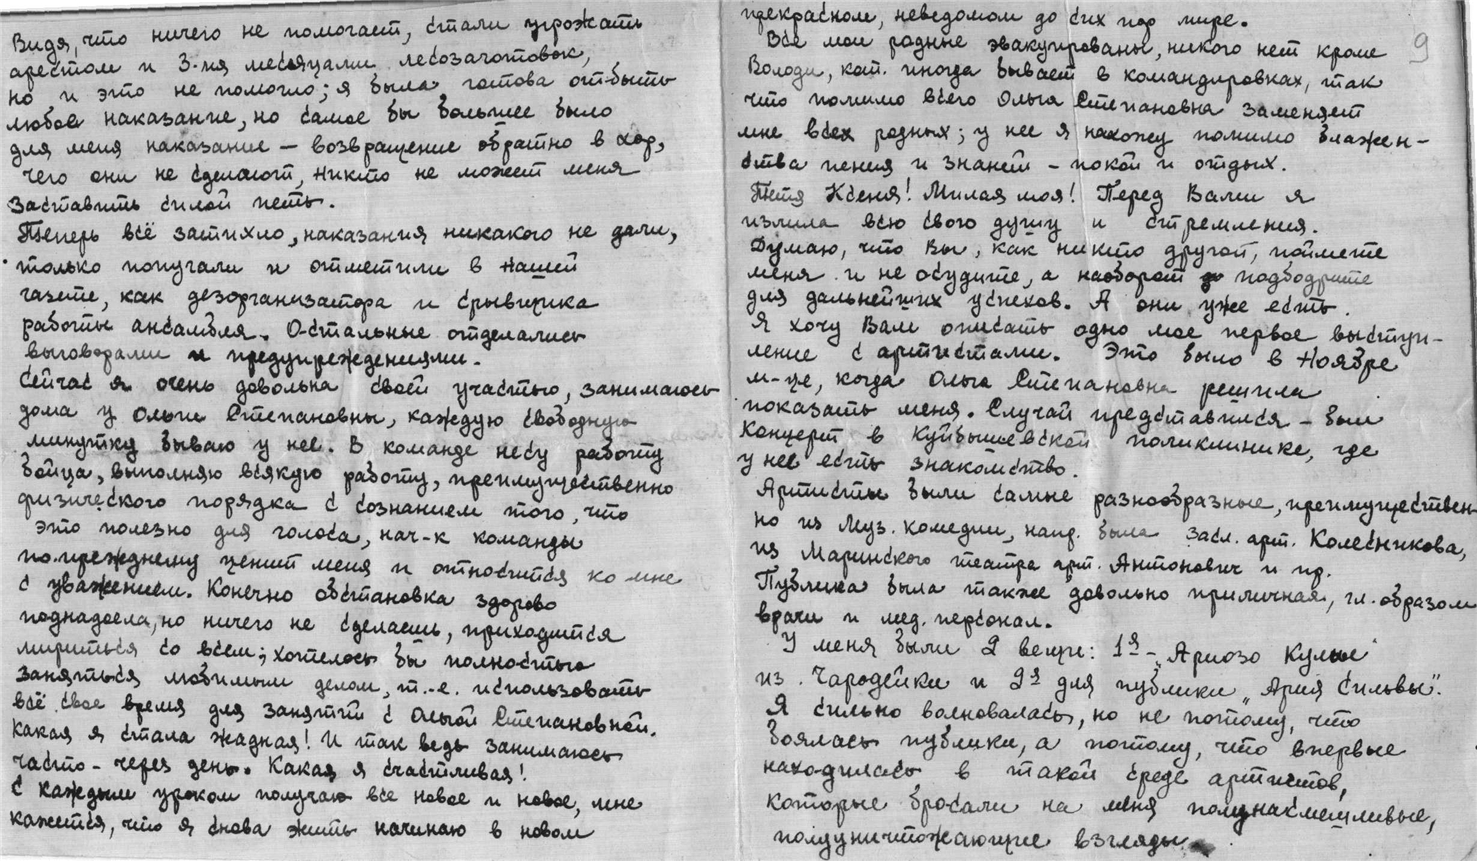 Видя, что ничего не помогает, стали угрожать
арестом и 3-мя месяцами лесозаготовок,
но и это не помогло; я была готова отбыть
любое наказание, но самое бы большее было
для меня наказание — возвращение обратно в хор,
чего они не сделают, никто не может меня
заставить силой петь.
Теперь всё затихло, наказания никакого не дали,
только попугали и отметили в нашей
газете, как дезорганизатора и срывщика
работы ансамбля. Остальные отделались
выговорами и предупреждениями.
Сейчас я очень довольна своей участью, занимаюсь
дома у Ольги Степановны, каждую свободную
минутку бываю у нее. В команде несу работу
бойца, выполняю всякую работу, преимущественно
физического порядка с сознанием того, что
это полезно для голоса, нач-к команды
по-прежднему ценит меня и относится ко мне
с уважением. Конечно обстановка здорово
поднадоела, но ничего не сделаешь, приходится
мириться со всем; хотелось бы полностью
заняться любимым делом, т.-е. использовать
всё свое время для занятий с Ольгой Степановной.
Какая я стала жадная! И так ведь занимаюсь
часто - через день. Какая я счастливая!
С каждым уроком получаю все новое и новое, мне
кажется, что я снова жить начинаю в новом
прекрасном, неведомом до сих пор мире.
9
Все мои родные эвакуированы, никого нет кроме
Володи, кот. иногда бывает в командировках, так
что помимо всего Ольга Степановна заменяет
мне всех родных; у нее я нахожу помимо блажен-
ства пения и знаний - покой и отдых.
Тетя Ксеня! Милая моя! Перед Вами я
излила всю свою душу и стремления.
Думаю, что Вы, как никто другой, поймете
меня и не осудите, а наоборот подбодрите
для дальнейших успехов. А они уже есть.
Я хочу Вам описать одно мое первое выступ-
ление с артистами. Это было в Ноябре
м-це, когда Ольга Степановна решила
показать меня. Случай представился - был
концерт в Куйбышевской поликлинике, где
у нее есть знакомство.
Артисты были самые разнообразные, преимуществен-
но из Муз. комедии, напр. была засл. арт. Колесникова,
из Маринского театра арт. Антонович и пр.
Публика была также довольно приличная, гл. образом
врачи и мед. персонал.
У меня были 2 вещи: 1я - „Ариозо Кумы"
из Чародейки и 2я для публики „Ария Сильвы".
Я сильно волновалась, но не потому, что
боялась публики, а потому, что впервые
находилась в такой среде артистов,
которые бросали на меня полунасмешливые,
полууничтожающие взгляды.